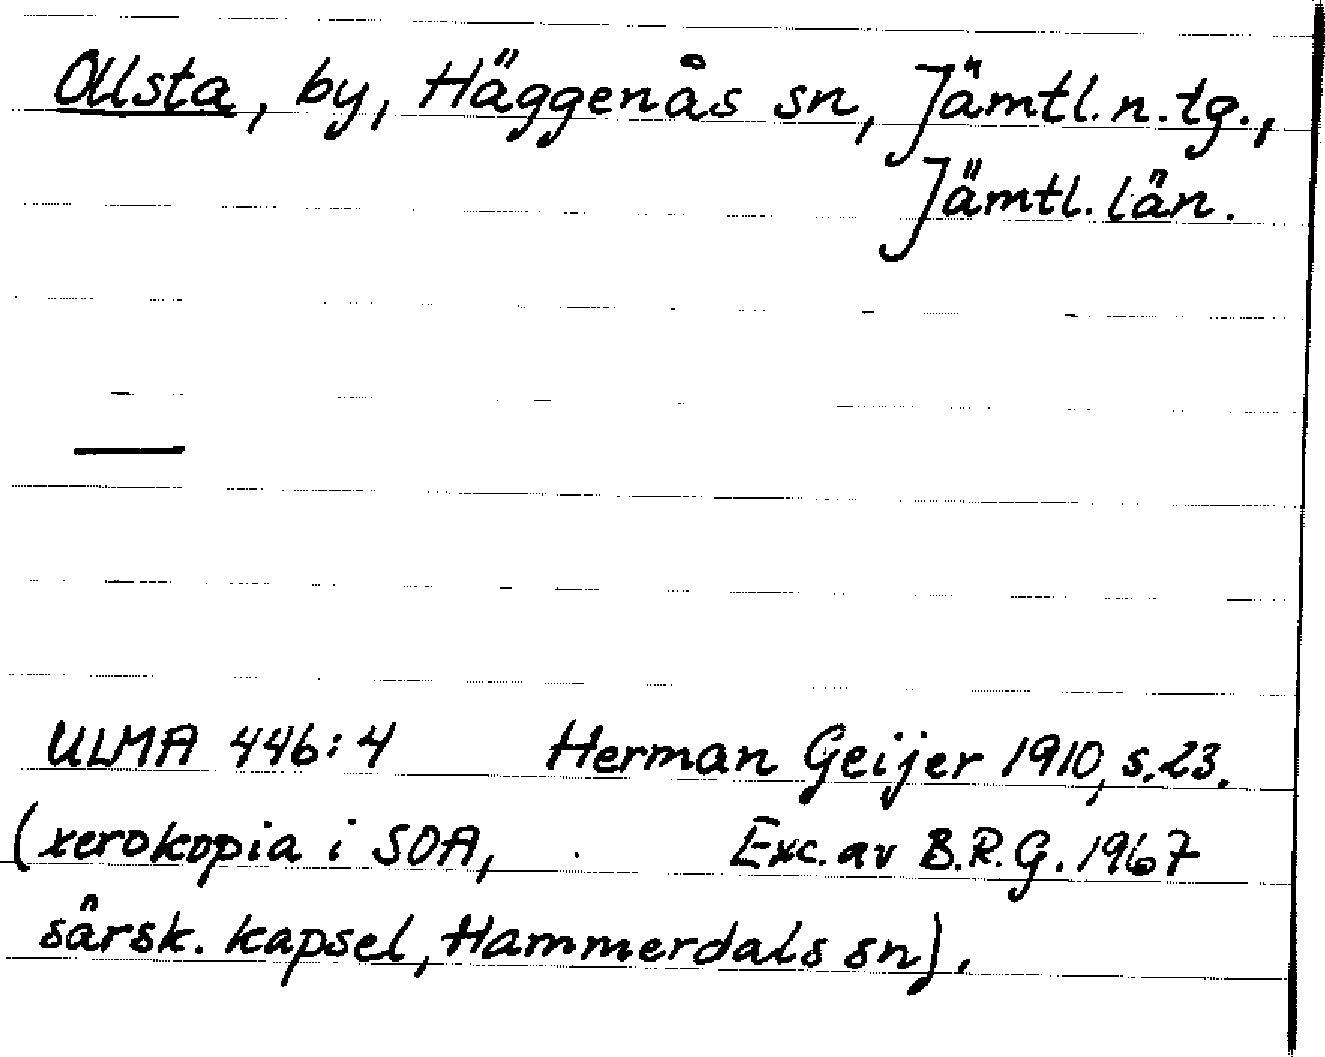 Ollsta, by, Häggenås sn, Jämtl. n. tg.,
Jämtl. län.
ULMA 446:4 Herman Geijer 1910, s. 23.
(xerokopia i SOA, Exc. av B.R.G. 1967
särsk. kapsel, Hammerdals sn).